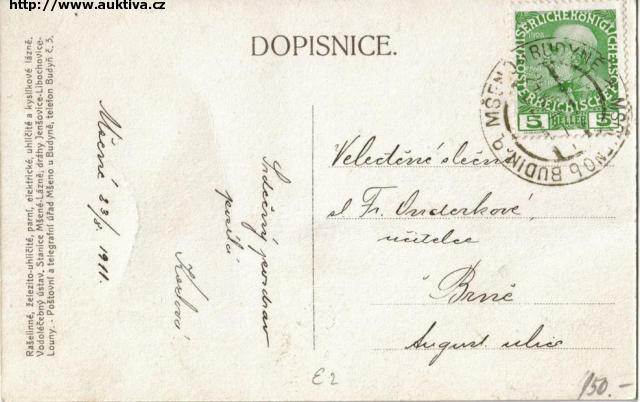 http://www.auktiva.cz
DOPISNICE.
Rašelinné, železito-uhličité, parní, elektrické, uhličité a kyslíkové lázně.
Vodoléčebný ústav. Stanice Mšené-Lázně, dráhy Jenšovice-Libochovice-
Louny. - Poštovní a telegrafní úřad Mšeno u Budyně, telefon Budyň č. 5.
Mšené 23/8 1911.
Srdečný pozdrav
posílá
Velectěné slečně
sl. Fr. Onderkové,
učitelce
Brně
August. ulice
5 HELLER 5
E2
150.-